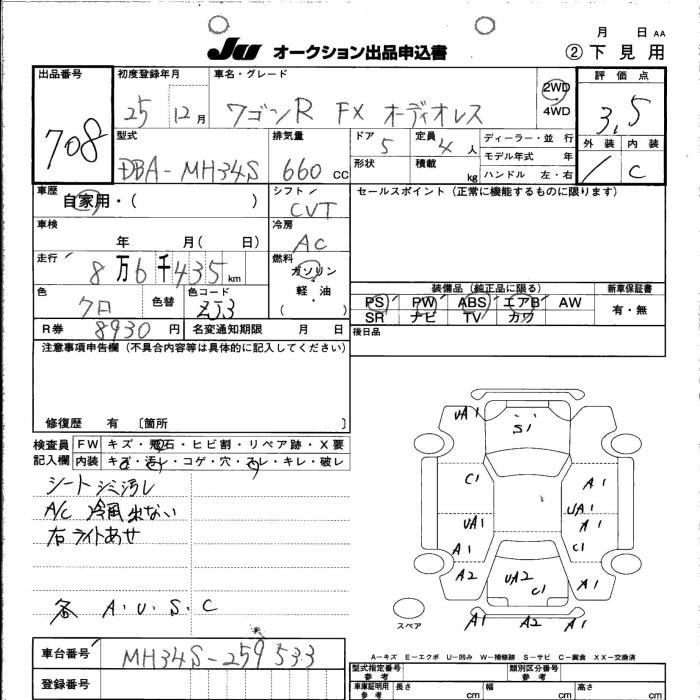 月 日 AA
JU オークション出品申込書 ② 下見用
出品番号 初度登録年月 車名・グレード 評価点
708 25 12月 ワゴンR FX オーディオレス 2WD 4WD 3.5
型式 排気量 ドア 定員 ディーラー・並行 外装 内装
DBA-MH34S 660cc 5 4人 モデル年式 年 C
形状 積載 kg ハンドル 左・右
車歴 自家用・( ) シフト CVT セールスポイント(正常に機能するものに限ります)
車検 年 月( 日) 冷房 AC
走行 8万6千435km 燃料 ガソリン・軽油・( )
色 クロ 色替 色コード ZJ3
装備品(純正品に限る) 新車保証書
PS PW ABS エアB AW 有・無
SR ナビ TV カワ
R券 8930円 名変通知期限 月 日 後日品
注意事項申告欄(不具合内容等は具体的に記入してください)
修復歴 有 〔箇所 〕
検査員記入欄 FW キズ・飛石・ヒビ割・リペア跡・X要
内装 キズ・汚れ・コゲ・穴・スレ・キレ・破レ
シートシミ汚レ
A/C 冷風出ない
右ライトあせ
各 A.U.S.C
UA1 S1
C1 A1
UA1 UA1 A1
A1 C1
A2 UA2 C1 A1
A1 A2 A1
スペア
A-キズ E-エクボ U-凹み W-補修跡 S-サビ C-腐食 XX-交換済
車台番号 MH34S-259533
登録番号
型式指定番号 参考 類別区分番号 参考
車庫証明用 参考 長さ cm 幅 cm 高さ cm